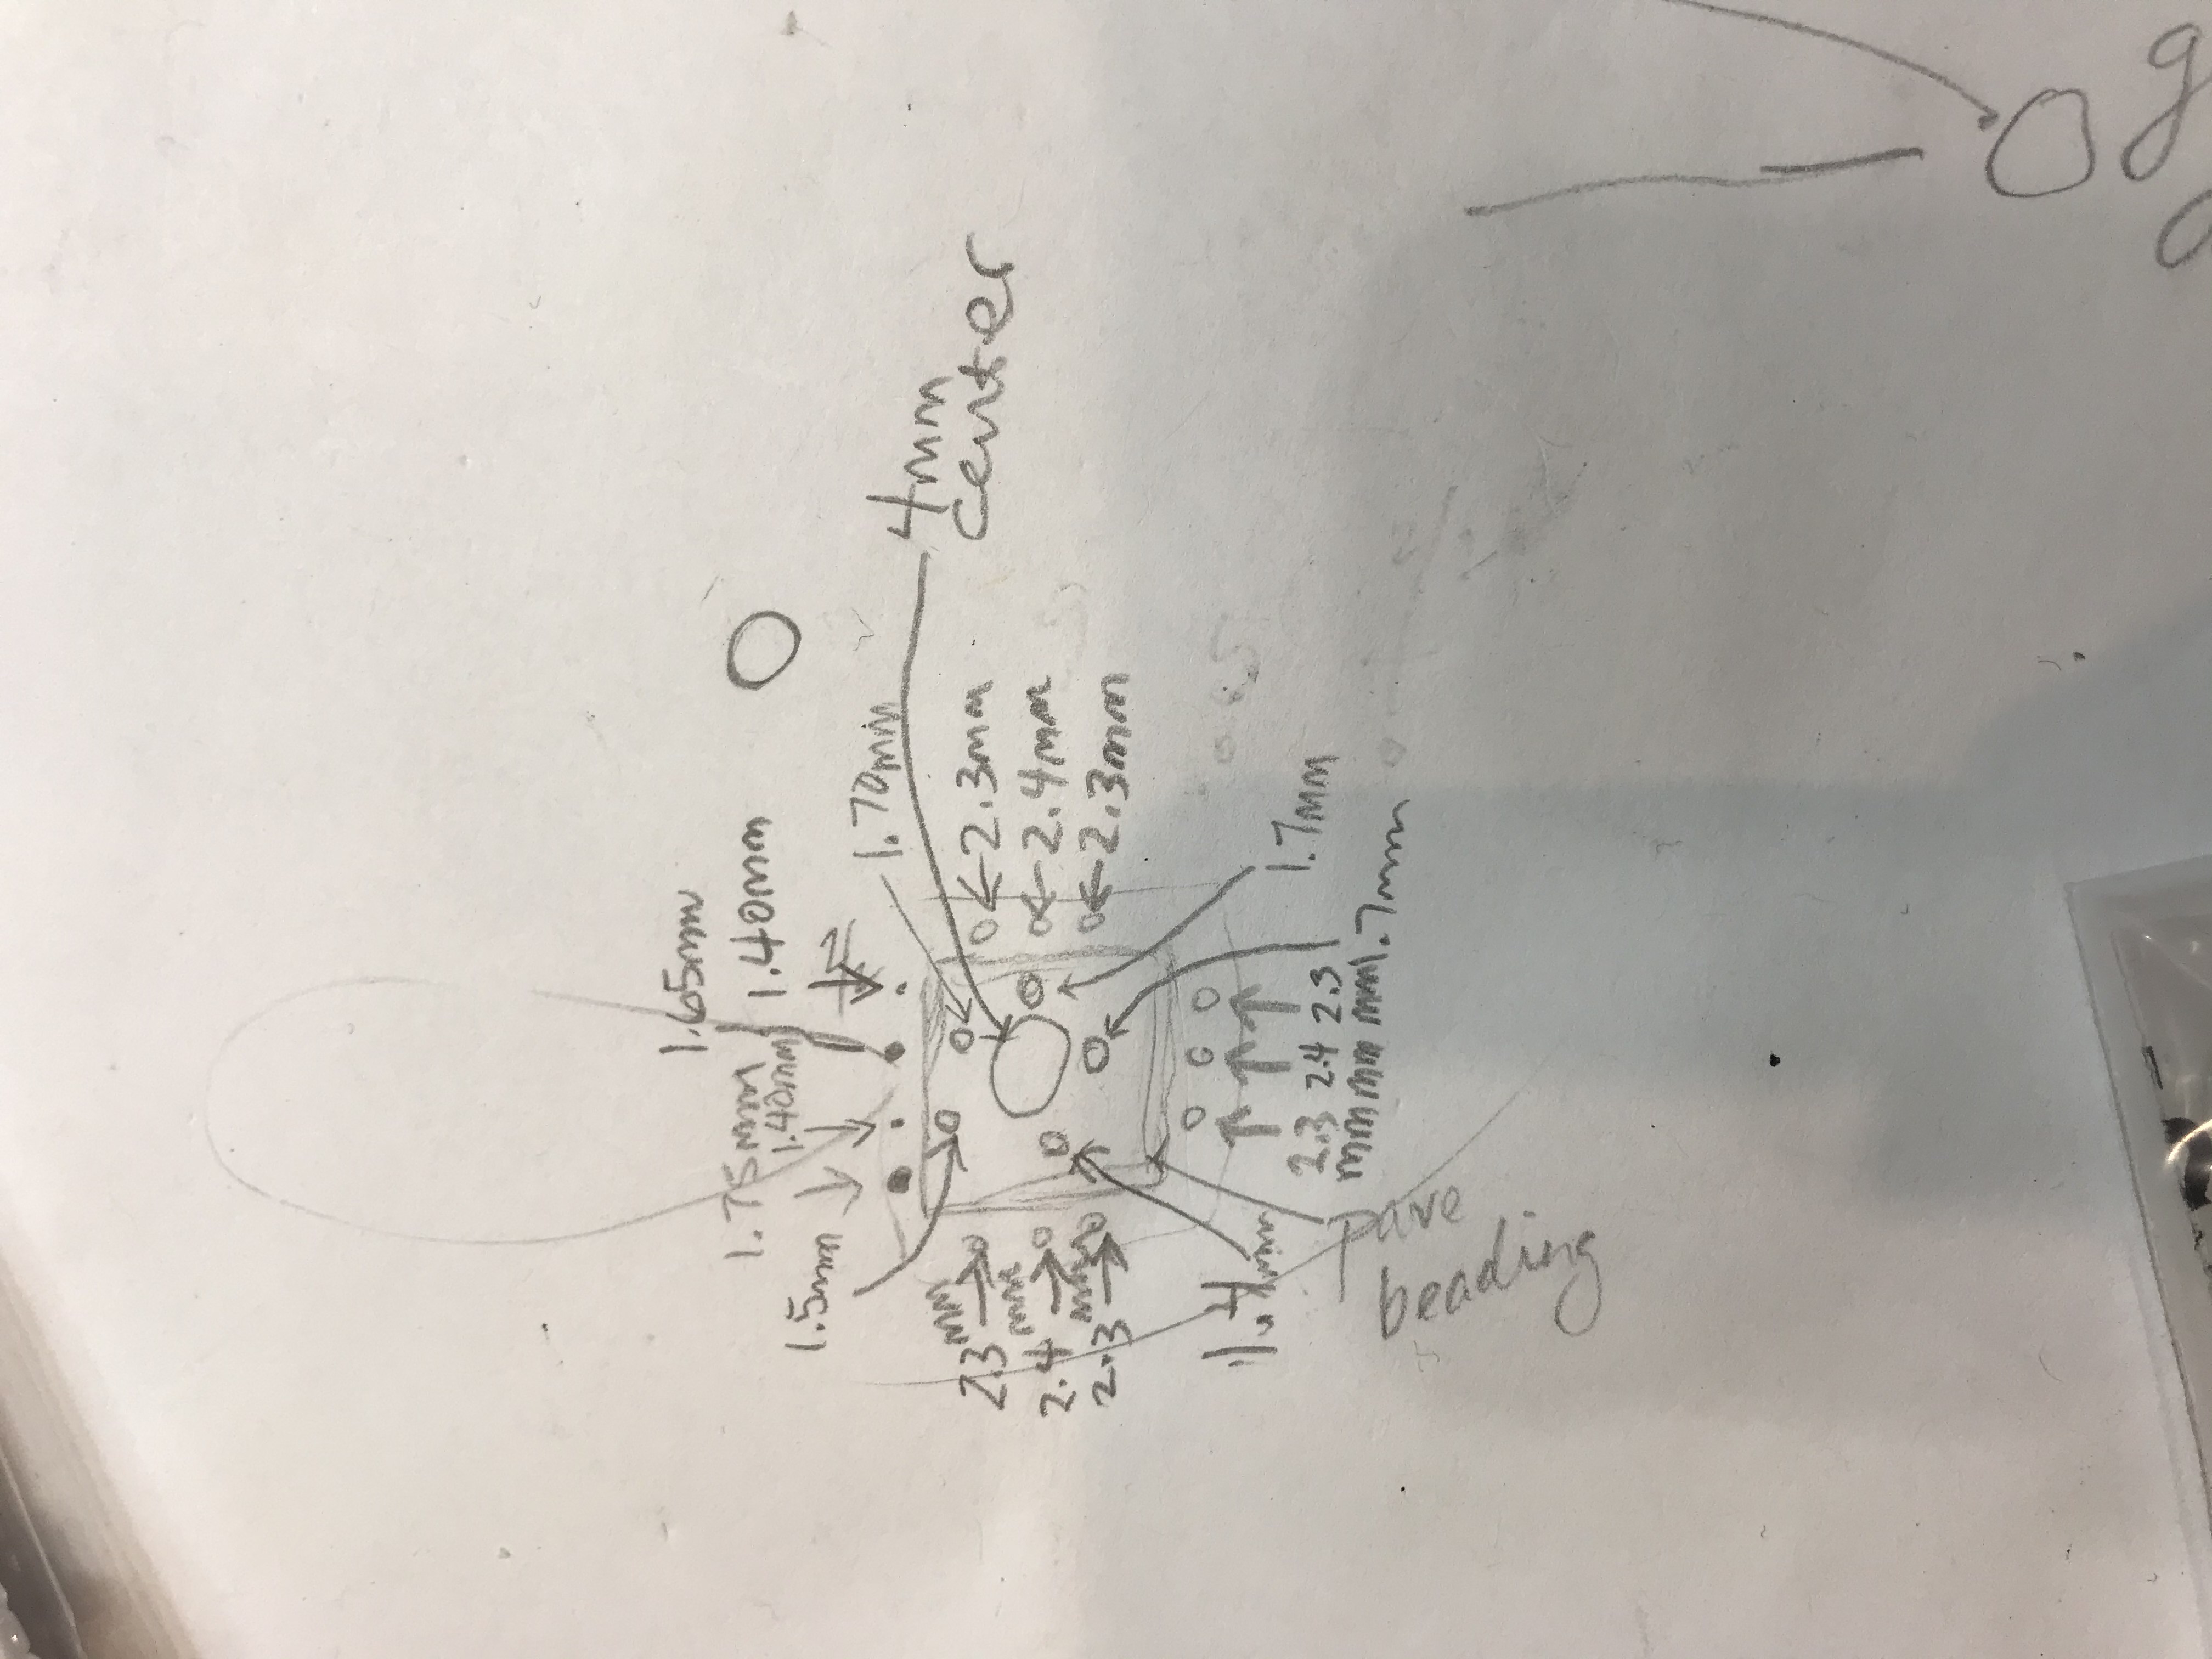 1.65mm
1.75mm
1.40mm
1.40mm
1.5mm
1.70mm
4mm
center
2.3mm
2.3mm
2.4mm
2.4mm
2.3mm
2.3mm
1.7mm
2.3 2.4 2.3
mm mm mm
1.7mm
Pave
beading